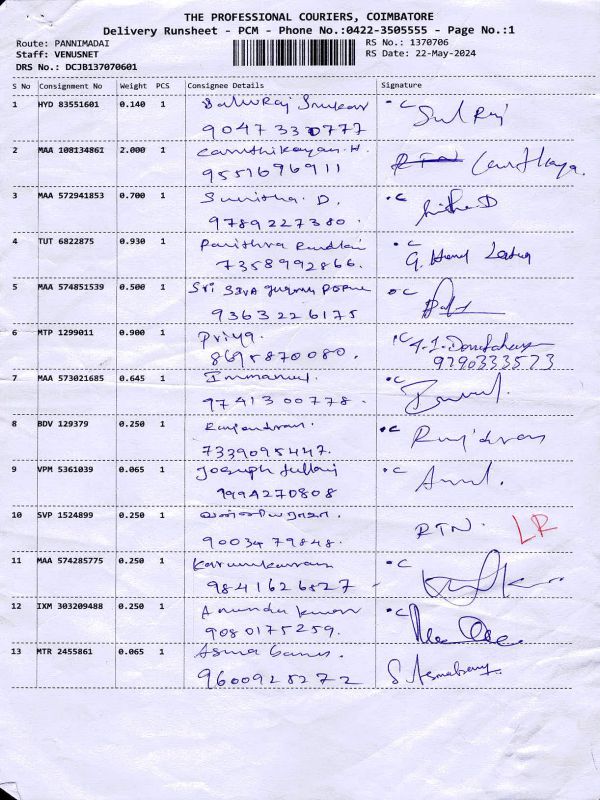 THE PROFESSIONAL COURIERS, COIMBATORE
Delivery Runsheet - PCM - Phone No.:0422-3505555 - Page No.:1
Route: PANNIMADAI
Staff: VENUSNET
DRS No.: DCJB137070601
RS No.: 1370706
RS Date: 22-May-2024
S No Consignment No Weight PCS Consignee Details Signature
1 HYD 83551601 0.140 1
9047330777
2 MAA 108134861 2.000 1 Carthikayan.H. RTN
9551696911
3 MAA 572941853 0.700 1 Sunitha. D.
9789227380.
4 TUT 6822875 0.930 1 Pavithra
7358992866.
5 MAA 574851539 0.500 1 Sri Siva
9363226175
6 MTP 1299011 0.900 1 Priya.
8695870080. 9790333573
7 MAA 573021685 0.645 1 Immanuel.
9741300778.
8 BDV 129379 0.250 1 Rajendran.
7339095447.
9 VPM 5361039 0.065 1 Joseph
9994270808
10 SVP 1524899 0.250 1 RTN. LR
9003479848.
11 MAA 574285775 0.250 1
9841626527
12 IXM 303209488 0.250 1
9080175259.
13 MTR 2455861 0.065 1 Asma banu. S. Asmabanu
9600928272